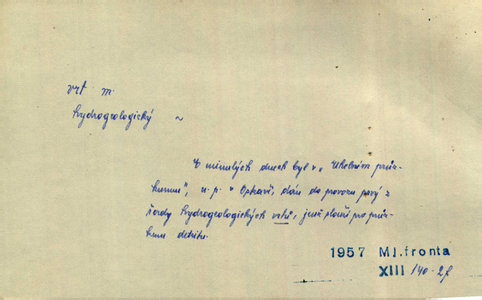 vrt m.
hydrogeologický ~
V minulých dnech byl v „Uhelném prův-
kumu“, n. p. v Ostravě, dán do provozu prvý z
řady hydrogeologických vrtů, jenž slouží pro prův-
kum detritu.
1957 Ml.fronta
XIII/140-2f